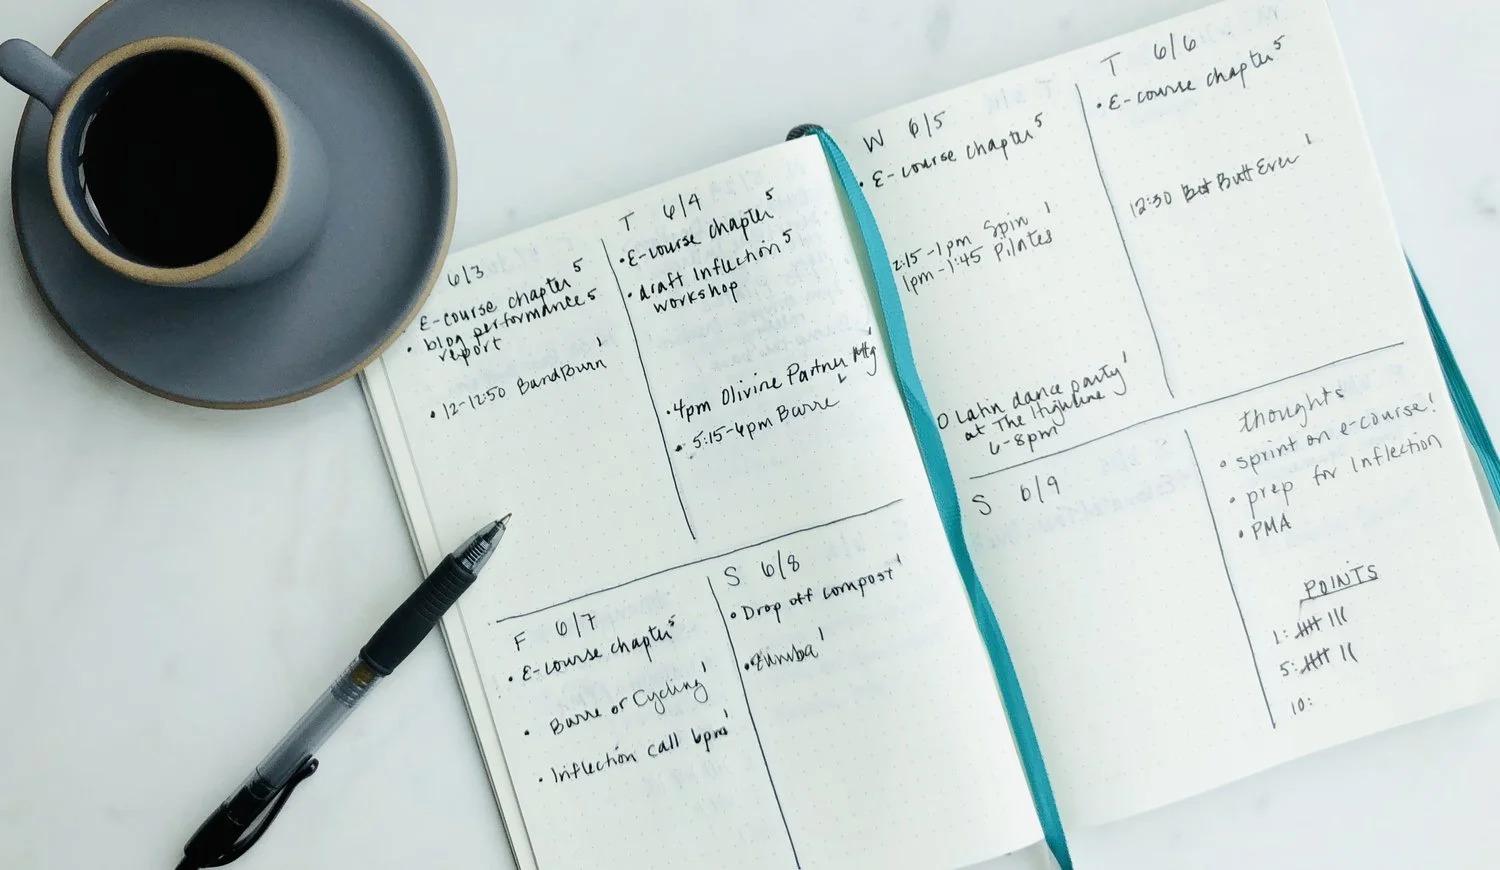 6/3
• E-course chapter 5
• blog performance 5
report
• 12-12:50 BandBurn 1
T 6/4
• E-course chapter 5
• draft Inflection 5
workshop
• 4pm Olivine Partner Mtg 1
• 5:15-6pm Barre
W 6/5
• E-course chapter 5
2:15-1pm Spin 1
1pm-1:45 Pilates 1
O Latin dance party 1
at The Highline
6-8pm
T 6/6
• E-course chapter 5
12:30 Best Butt Ever 1
F 6/7
• E-course chapter 5
• Barre or Cycling 1
• Inflection call 6pm 1
S 6/8
• Drop off compost 1
• Zumba 1
S 6/9
thoughts
• sprint on e-course!
• prep for Inflection
• PMA
POINTS
1: |||| |||
5: |||| ||
10: